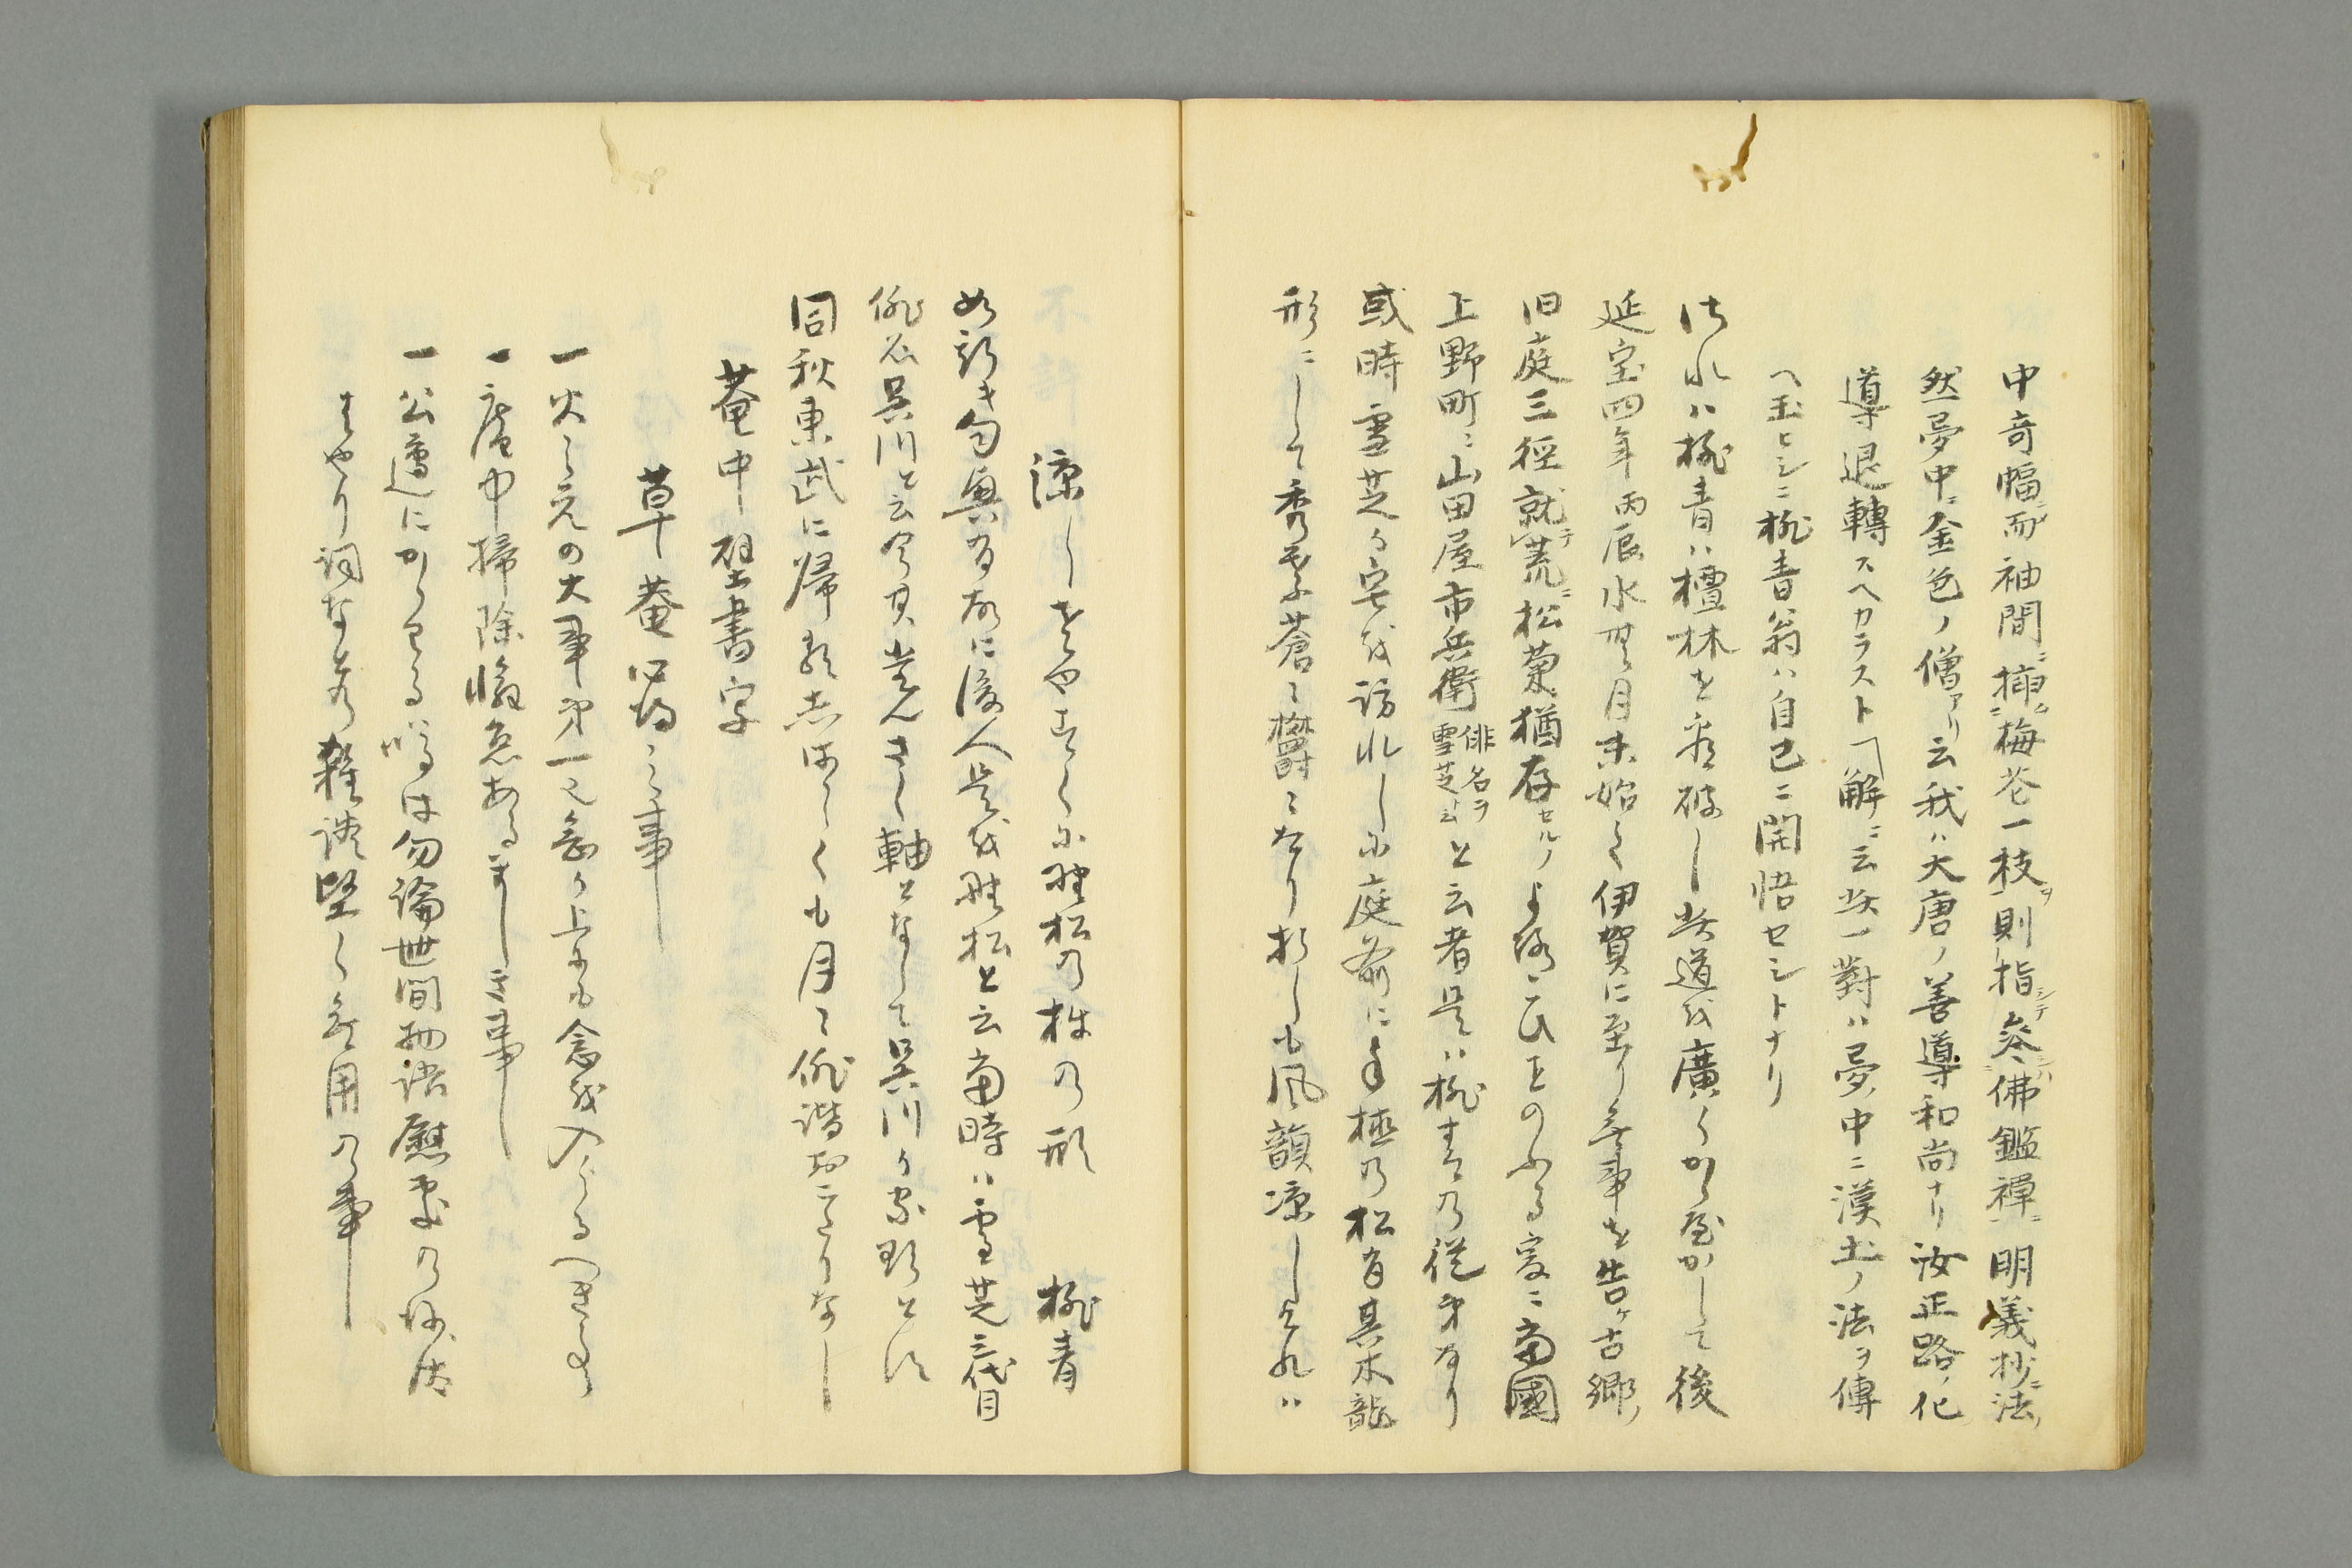 中奇幅ニ而袖間ニ挿ム梅花一枝ヲ則指シテ参ハ佛鑑禅ニ明義抄ニ法ノ
然夢中ニ金色ノ僧アリ云我ハ大唐ノ善導和尚ナリ汝正路ノ化
導退轉スヘカラスト解ニ云此一對ハ夢ノ中ニ漢土ノ法ヲ傳
ヘ玉ヒシニ桃青翁ハ自己ニ開悟セシトナリ
され八桃青ハ檀林を看破し此道を廣くかゝやかして後
延宝四年丙辰水無月末始て伊賀に至り無事を告ケ古郷ノ
旧庭三徑就テ荒ニ松菊猶存セルノよろこひをのふる爰ニ當國
上野町ニ山田屋市兵衛俳名ヲ雪芝ト云と云者是ハ桃青の従弟なり
或時雪芝か宅を訪れしに庭前にる極の松有其木龍
形ニして秀季蒼々欝々たり折しも風韻凉しけれハ
涼しさやすくに野松の枝の形　桃青
如斯キ句興有故に後人是を野松と云當時ハ雪芝三代目
俳名呉川と云今其巻きし軸となして呉川か家珍とす
同秋東武に帰庵ましくも月々俳諧おこたりなし
菴中壁書字
草菴営之事
一火之元の大事第一之無か上にも念を入らるへき事
一庵中掃除懈怠あるましき事
一公邊にかゝわる噂は勿論世間物語慰事の勝法
はやり詞なとの雑談堅く無用の事